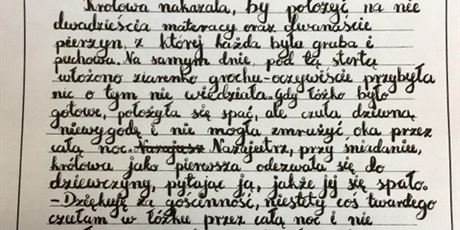 Królowa nakazała, by położyć na nie
dwadzieścia materacy oraz dwanaście
pierzyn, z której każda była gruba i
puchowa. Na samym dnie, pod tą stertą
włożono ziarenko grochu-oczywiście przybyła
nic o tym nie wiedziała. Gdy łóżko było
gotowe, położyła się spać, ale czuła dziwną
niewygodę i nie mogła zmrużyć oka przez
całą noc. Nazajusz Nazajutrz, przy śniadaniu,
królowa jako pierwsza odezwała się do
dziewczyny, pytając ją, jakże jej się spało.
-Dziękuję za gościnność, niestety coś twardego
czułam w łóżku przez całą noc i nie